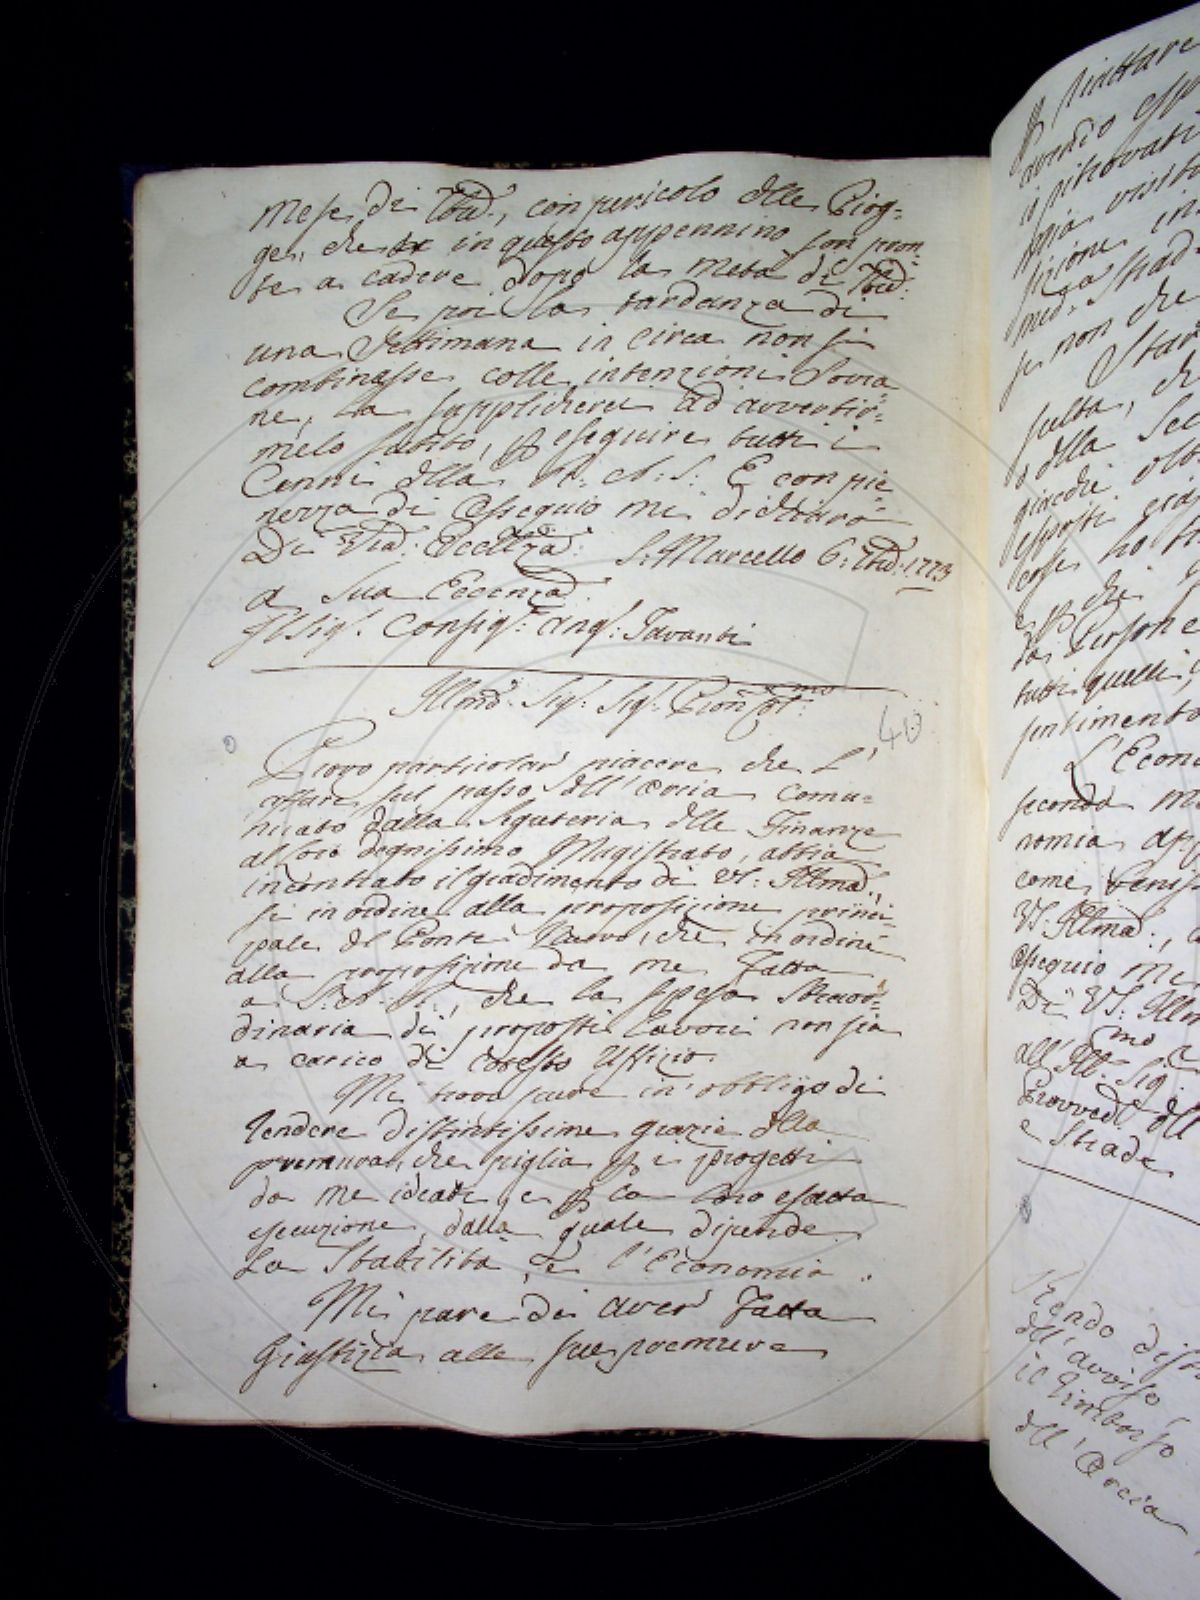 mese di 7bre, con pericolo dlle Piog-
ge, che in questo appennino son pron-
te a cadere dopo la metà di 7bre:
Se poi la tardanza di
una Settimana in circa non si
combinasse colle intenzioni Sovra-
ne, la supplicherei ad avvertir-
melo subito, p eseguire tutti i
Cenni dlla R: A: S: E con pie-
nezza di Ossequio mi dichiaro
Di Vra: Eccellza: S: Marcello 6: 7bre: 1773
a Sua Eccenza
Il Sigr. Consigr: Angr: Tavanti
Illmo: Sigr: Sigr: Pron Col:mo
413
Provo particolar piacere che l'
affare sul passo dll' Orcia comu-
nicato dalla Segreteria dlle Finanze
al loro degnissimo Magistrato, abbia
incontrato il gradimento di VS: Illma:,
si in ordine alla proposizione princi-
pale del Ponte Nuovo, che in ordine
alla proposizione da me fatta
a S: A: R:, che la spesa straor-
dinaria di proposti lavori non sia
a carico di codesto Uffizio
Mi trovo pure in obbligo di
rendere distintissime grazie dlla
premura, che piglia p i progetti
da me ideati, e p la loro esatta
esecuzione, dalla quale dipende
la Stabilità, e l'Economia.
Mi pare di aver fatta
Giustizia alle sue premure
piuttare
avendo esp
ritrovati
visita
sizione in
med: a strad
se non che
Star
sulta, ch
o dlla Sel
giacchè olt
esposti ria
cose ho
e p che
da Persone
tutti quelli,
sentimento
L'Econo
secondo m
nomia app
come
VS: Illma:,
ossequio mi
Di VS: Illm
all' Ill:mo Sig:
Provved: dll
e Strade
Rendo dist
dll' avviso,
il Rimborso
dll' Orcia